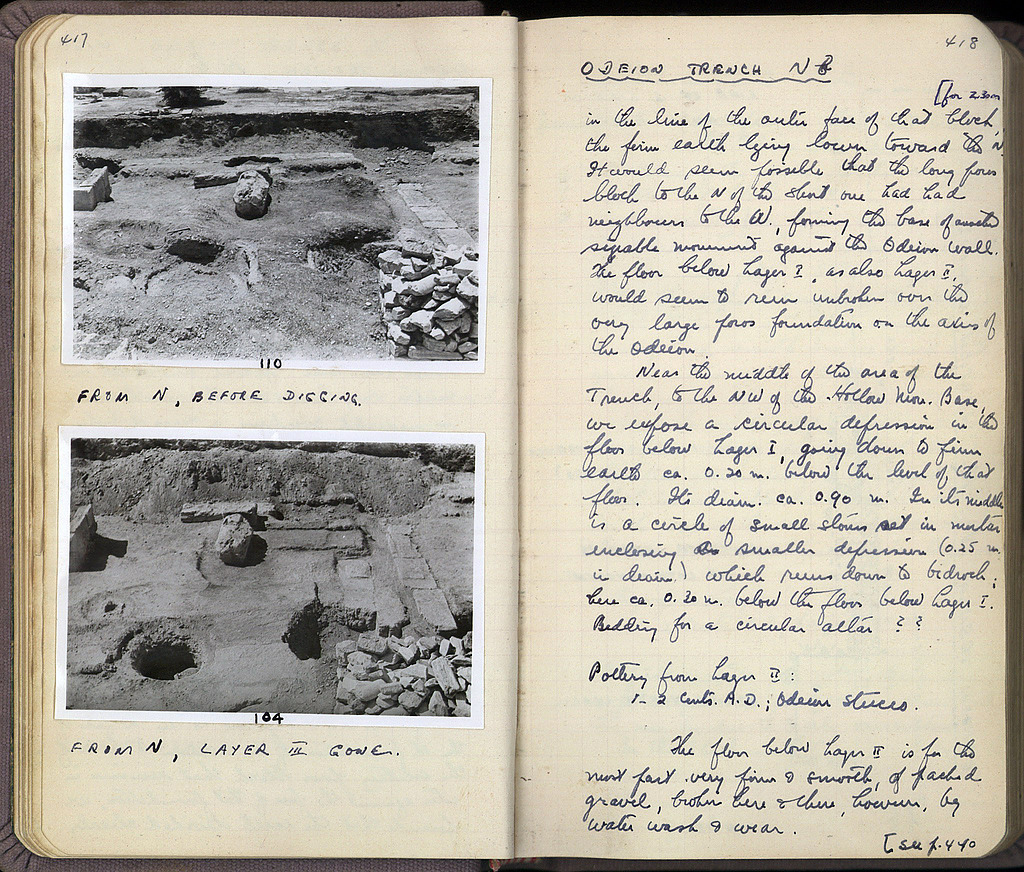 417
110
FROM N, BEFORE DIGGING.
104
FROM N, LAYER III GONE.
418
ODEION TRENCH N
[for 2.30 m
in the line of the outer face of that block,
the firm earth lying lower toward the N.
It would seem possible that the long poros
block to the N of the short one had had
neighbours to the W., forming the base of another
sizable monument against the Odeion wall.
The floor below Layer I, as also Layer II,
would seem to run unbroken over the
very large poros foundation on the axis of
the Odeion.
Near the middle of the area of the
Trench, to the NW of the Hollow Mon. Base,
we expose a circular depression in the
floor below Layer I, going down to firm
earth ca. 0.20 m. below the level of that
floor. Its diam. ca. 0.90 m. In its middle
is a circle of small stones set in mortar
enclosing a smaller depression (0.25 m.
in diam.) which runs down to bedrock,
here ca. 0.30 m. below the floor below Layer I.
Bedding for a circular altar ??
Pottery from Layer II:
1-2 Cents. A.D.; Odeion stucco.
The floor below Layer II is for the
most part very firm & smooth, of packed
gravel, broken here & there, however, by
water wash & wear.
[see p. 440